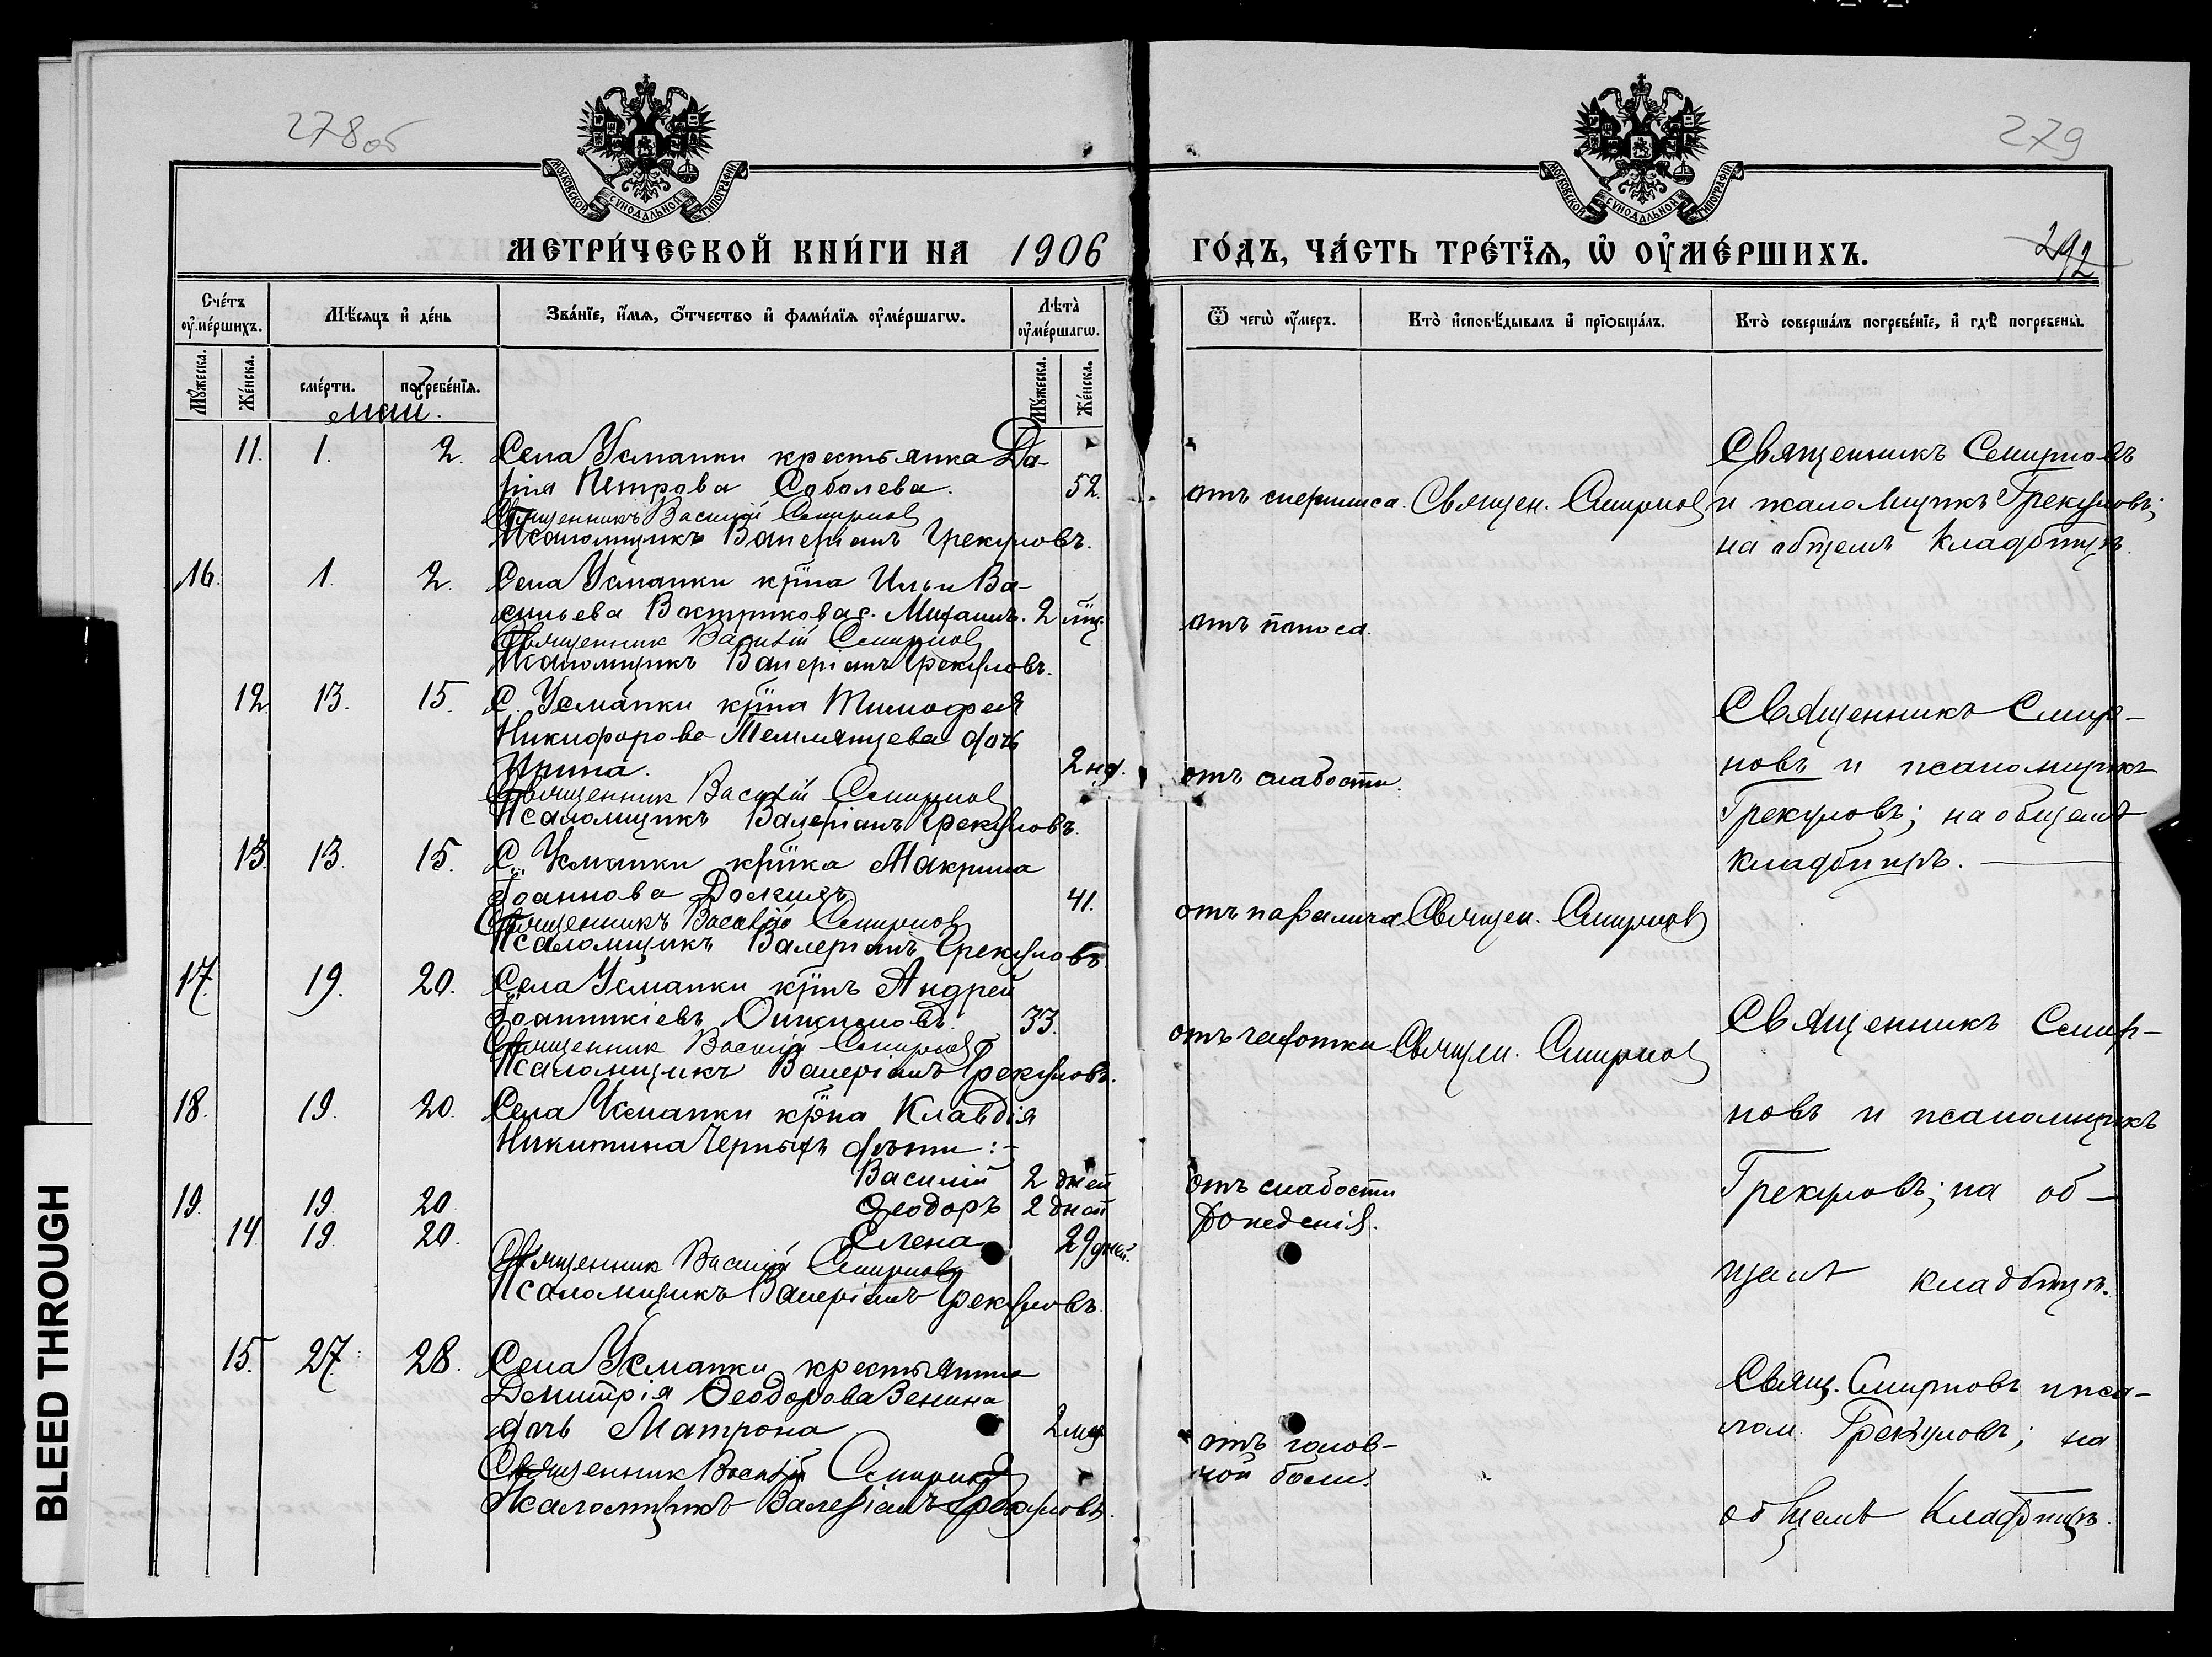 278 об
279
МОСКОВСКОЙ СѴНОДАЛЬНОЙ ТИПОГРАФІИ
МОСКОВСКОЙ СѴНОДАЛЬНОЙ ТИПОГРАФІИ
МЕТРИ́ЧЕСКОЙ КНИ́ГИ НА 1906 ГО́ДЪ, ЧА́СТЬ ТРЕ́ТЇѦ, Ѡ҆ ОУ҆МЕ́РШИХЪ.
292
Сче́тъ оу҆ме́ршихъ.
Мѣ́сяцъ и҆ де́нь
Зва́нїе, и҆́мѧ, ѻ҆́тчество и҆ фами́лїѧ оу҆ме́ршагѡ.
Лѣта̀ оу҆ме́ршагѡ.
Ѿ чегѡ̀ оу҆́меръ.
Кто̀ и҆сповѣ́дывалъ и҆ прїѡбща́лъ.
Кто̀ соверша́лъ погребе́нїе, и҆ гдѣ̀ погребены̀.
Мꙋ́жеска.
Же́нска.
сме́рти.
погребе́нїѧ.
Мꙋ́жеска.
Же́нска.
Май.
11. 1. 2. Села Усманки крестьянка Да-
рія Петрова Соболева. 52.
Священникъ Василій Смирнов
Псаломщикъ Валеріанъ Грекуловъ.
Священ. Смирнов
Священникъ Смирновъ
и псаломщикъ Грекуловъ;
на общемъ кладбищѣ.
16. 1. 2. Села Усманки кр̃на Ильи Ва-
сильева Вострикова с. Михаилъ. 2 мц.
Священник Василій Смирнов
Псаломщикъ Валеріанъ Грекуловъ.
отъ поноса.
12. 13. 15. С. Усманки кр̃на Тимофея
Никифорова дочь
Ирина. 2 нд.
Священник Василій Смирнов
Псаломщикъ Валеріанъ Грекуловъ.
отъ слабости.
Священникъ Смир-
новъ и псаломщикъ
Грекуловъ; на общемъ
кладбищѣ.
13. 13. 15. С. Усманки кр̃нка Макрина
Іоаннова Долгихъ. 41.
Священникъ Василій Смирнов
Псаломщикъ Валеріанъ Грекуловъ.
отъ паралича. Священ. Смирнов
17. 19. 20. Села Усманки кр̃нъ Андрей
Іоанникіевъ 33.
Священник Василій Смирнов
Псаломщикъ Валеріанъ Грекуловъ.
отъ чахотки Священ. Смирнов
Священникъ Смир-
новъ и псаломщикъ
Грекуловъ; на об-
щемъ кладбищѣ.
18. 19. 20. Села Усманки кр̃на Клавдія
Никитина Черныхъ дѣти:-
Василій 2 дней
19. 19. 20. Ѳеодоръ 2 дней
14. 19. 20. Елена 2 дней.
Священник Василій Смирнов
Псаломщикъ Валеріанъ Грекуловъ.
отъ слабости
рожденія.
15. 27. 28. Села Усманки крестьянина
Димитрія Ѳеодорова Зенина
дочь Матрона 2
Священник Василій Смирнов
Псаломщикъ Валеріанъ Грекуловъ.
отъ голов-
ной боли.
Свящ. Смирновъ и пса-
лом. Грекуловъ; на
общемъ кладбищѣ
BLEED THROUGH